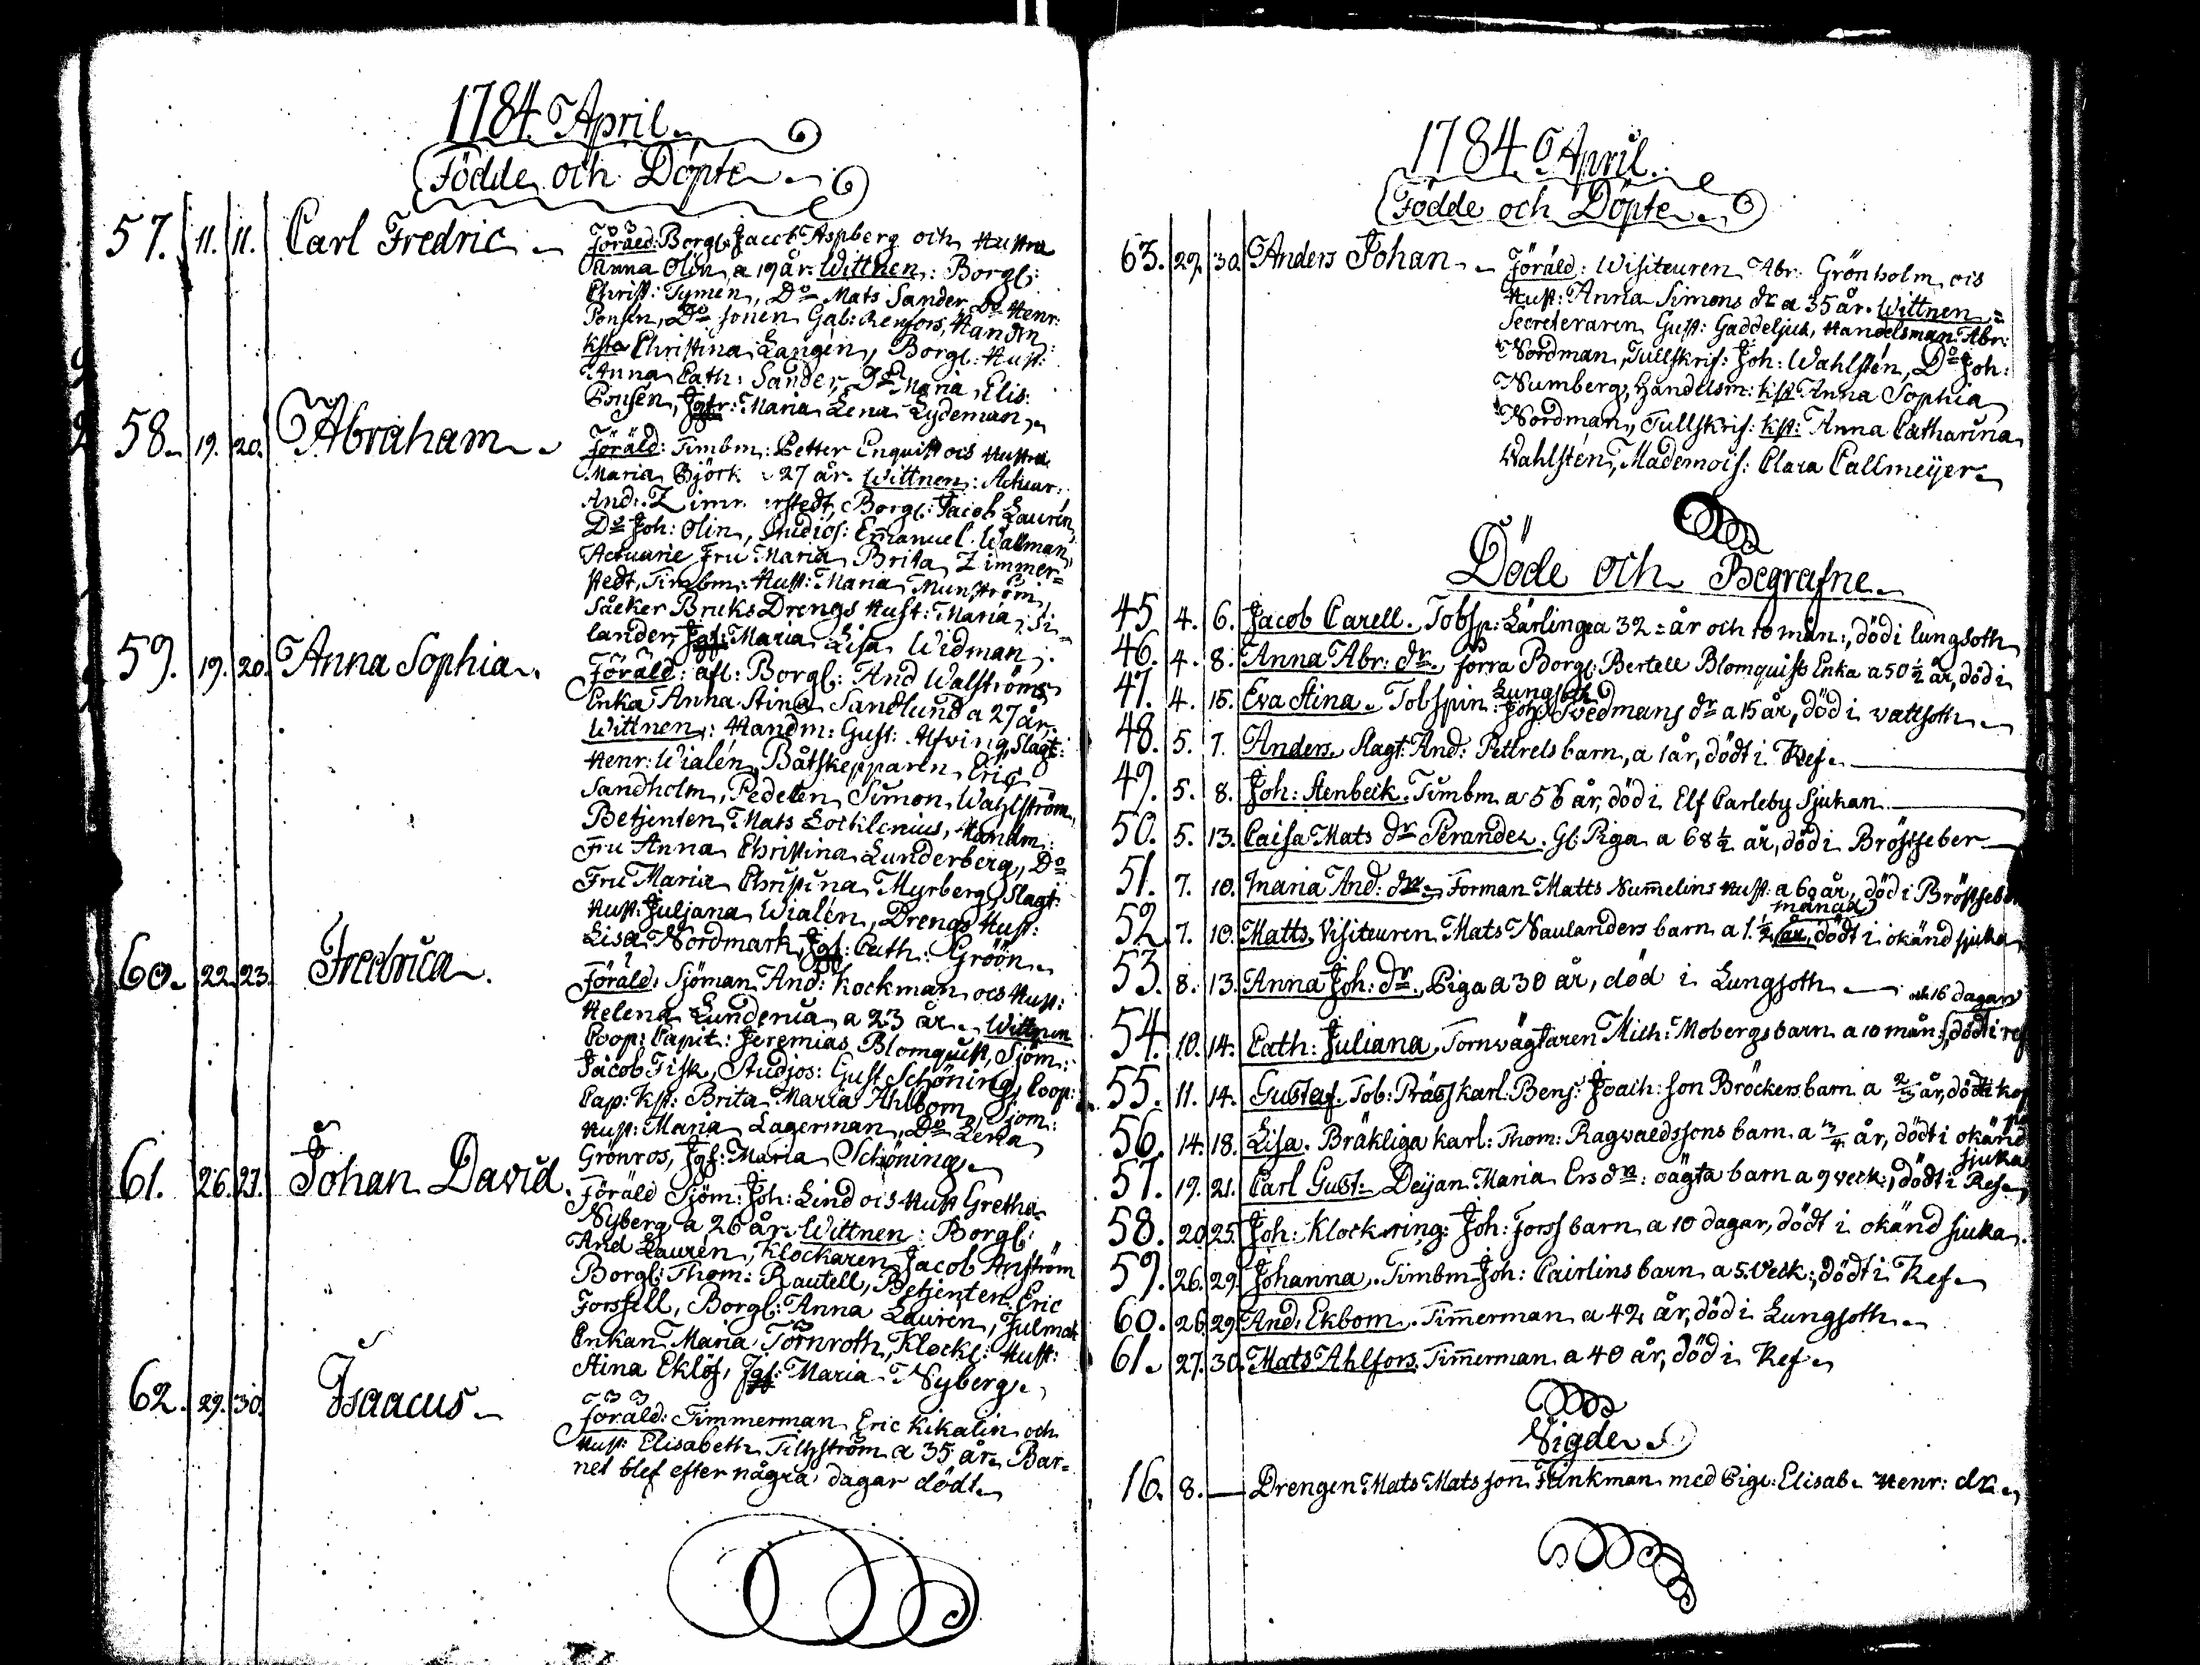 1784. April.
Födde och Döpte.
57. 11. 11. Carl Fredric. Föräld: Borgl: Jacob Aspberg och Hustru
Anna Olin a 19 år. Wittnen: Borgl:
Christ: Tymén, Do Mats Sander, Do Henr:
Ponsén, Do Sonen Gab: Renfors, Handm:
ksta Christina Langén, Borgl: Hust:
Anna Cath: Sander, Do Maria Elis:
Ponsén, Jgfr: Maria Lena Lydeman.
58. 19. 20. Abraham. Föräld: Timbm: Petter Enquist ocs Hustru
Maria Björk 27 år. Wittnen: Actuar:
And: Zimmerstedt, Borgl: Jacob Laurén,
Do Joh: Olin, Studios: Emanuel Wallman,
Actuarie Fru Maria Brita Zimmer=
stedt, Timbm: Hust: Maria Munström,
Såcker Bruks Drengs Hust: Maria Si=
lander, Jgf: Maria Lisa Widman.
59. 19. 20. Anna Sophia. Föräld: afl: Borgl: And Walströms
Enka Anna Stina Sandlund a 27 år.
Wittnen: Handm: Gust: Alfving, Slagt:
Henr: Wialén, Båtskepparen Eric
Sandholm, Pedelen Simon Wahlström,
Betjenten Mats Locklenius, Handm:
Fru Anna Christina Lunderberg, Do
Fru Maria Christina Myrberg, Slagt:
Hust: Juljana Wialén, Drengs Hust:
Lisa Nordmark, Jgf: Cath: Gröön.
60. 22. 23. Fredrica. Föräld: Sjöman And: Kockman ocs Hust:
Helena Lundenia a 23 år. Wittnen
Coop: Capit: Jeremias Blomquist, Sjöm:
Jacob Fisk, Studjos: Gust Schöning, Coop:
Cap: Kst: Brita Maria Ahlbom, Sjöm:
Hust: Maria Lagerman, Do Lena
Grönros, Jgf: Maria Schöning.
61. 26. 27. Johan David. Föräld Sjöm: Joh: Lind ocs Hust Gretha
Nyberg a 26 år. Wittnen: Borgl:
And Laurén, Klockaren Jacob Anström
Borgl: Thom: Rautell, Betjenten Eric
Forssell, Borgl: Anna Laurén,
Enkan Maria Törnroth, Klock: Hust:
Stina Eklöf, Jgf: Maria Nyberg.
62. 29. 30. Isaacus. Föräld: Timmerman Eric Kikalin och
Hust: Elisabeth Tiltzström a 35 år. Bar=
net blef efter några dagar dödt.
1784. April.
Födde och Döpte.
63. 29. 30. Anders Johan. Föräld: Visiteuren Abr: Grönholm ocs
Hust: Anna Simons dr a 35 år. Wittnen =
Secreteraren Gust: Gaddeljuk, Handelsman Abr:
Nordman, Tullskrif: Joh: Wahlstén, Do Joh:
Numberg, Handelsm: kst Anna Sophia
Nordman, Tullskrif: kst: Anna Catharina
Wahlstén, Mademois: Clara Callmeijer.
Döde och Begrafne.
45 4. 6. Jacob Carell. Tobsp: Lärling a 32 = år och 10 mån:, död i lungsoth
46. 4. 8. Anna Abr: dr. förra Borgl: Bertell Blomquists Enka a 50 ½ år, död i
Lungsoth
47. 4. 15. Eva Stina. Tobspin: Joh: Svedmans dr a 15 år, död i vattsoth.
48. 5. 7. Anders. Slagt: And: Pettrels barn, a 1 år, dödt i Ref.
49. 5. 8. Joh: Stenbeck. Timbm a 56 år, död i Elf Carleby Sjukan
50. 5. 13. Caisa Mats dr Perander. Gl: Piga a 68 ½ år, död i Bröstfeber
51. 7. 10. Maria And: dr. Forman Matts Nummelins Hust: a 60 år, död i Bröstfeber
månad
52 7. 10. Matts. Visiteuren Mats Naulanders barn a 1 ½ år, dödt i okänd sjuka
53. 8. 13. Anna Joh: dr. Piga a 30 år, död i Lungsoth
och 16 dagar
54. 10. 14. Cath: Juliana. Tornvägtaren Mich: Mobergs barn a 10 mån:, dödt i ref
55. 11. 14. Gustaf. Tob: Prässkarl Benj: Joach:son Bröckers barn a 2/3 år, dödt i
56. 14. 18. Lisa. Bräkliga karl: Thom: Ragvaldssons barn a ¾ år, dödt i okänd
sjuka
57. 19. 21. Carl Gust. Deijan Maria Ersdr: oägta barn a 9 veck:, dödt i Ref.
58. 20 25. Joh: Klockring: Joh: Forss barn a 10 dagar, dödt i okänd sjuka.
59. 26. 29. Johanna. Timbm Joh: Cairlins barn a 5. Veck:, dödt i Ref.
60. 26 29 And: Ekbom. Timmerman a 42 år, död i Lungsoth.
61. 27. 30. Mats Ahlfors. Timmerman a 40 år, död i Ref.
Vigde.
16. 8. — Drengen Mats Matsson Finkman med Pig: Elisab. Henr: dr.